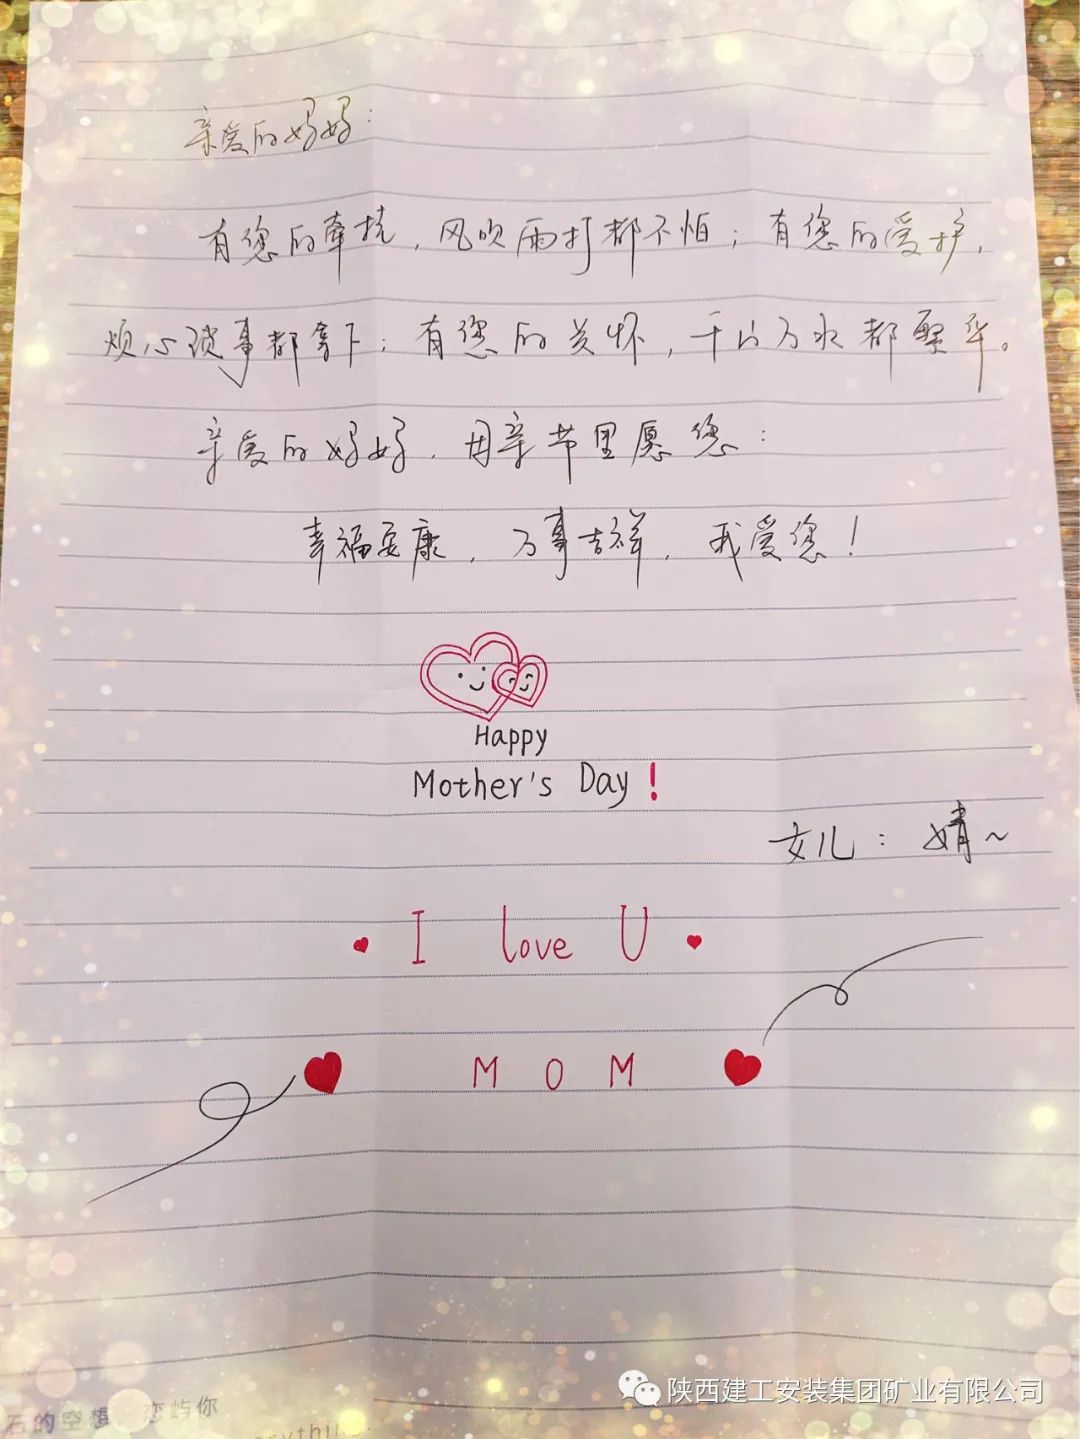 亲爱的妈妈:
有您的牵挂,风吹雨打都不怕;有您的爱护,
烦心琐事都拿下;有您的关怀,千山万水都繁华。
亲爱的妈妈,母亲节里愿您:
幸福安康,万事吉祥,我爱您!
Happy
Mother's Day!
女儿:婧~
I love U
MOM
陕西建工安装集团矿业有限公司
石的空想 恋屿你